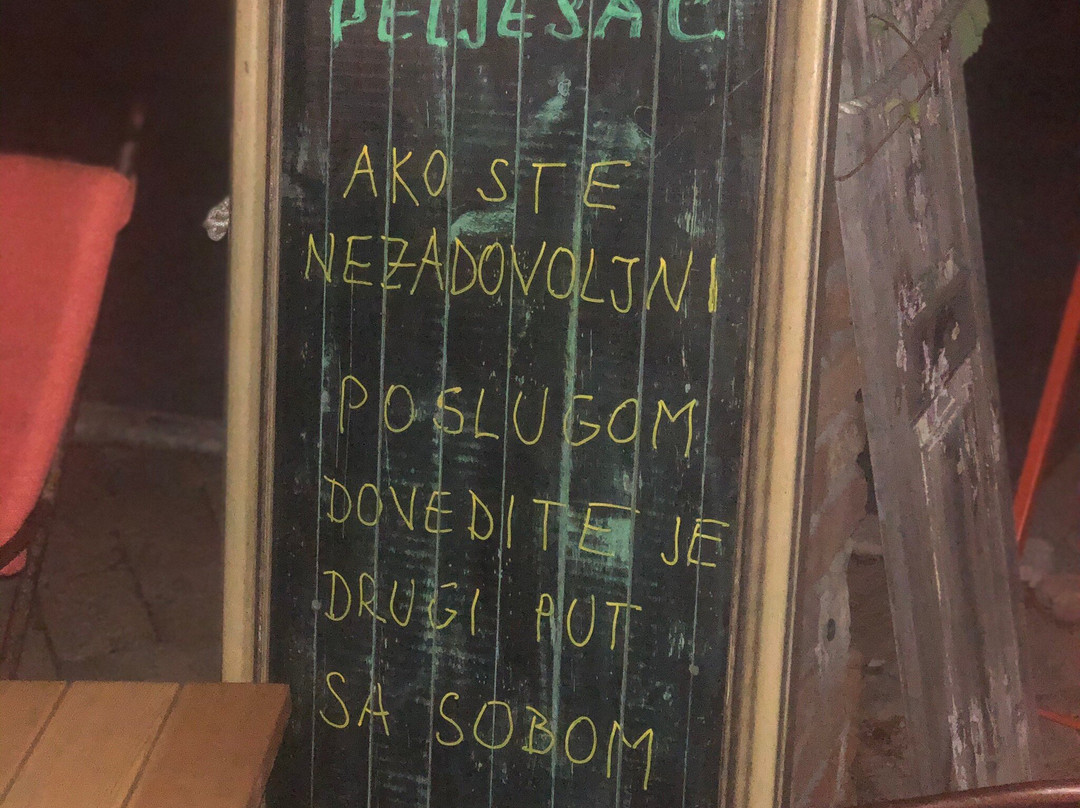 PELJEŠAC
AKO STE
NEZADOVOLJNI
POSLUGOM
DOVEDITE JE
DRUGI PUT
SA SOBOM